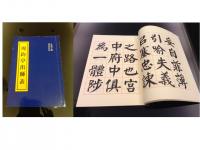 出師表
妄自菲薄
引喻失義
以塞忠諫
之路也宮
中府中俱
為一體陟